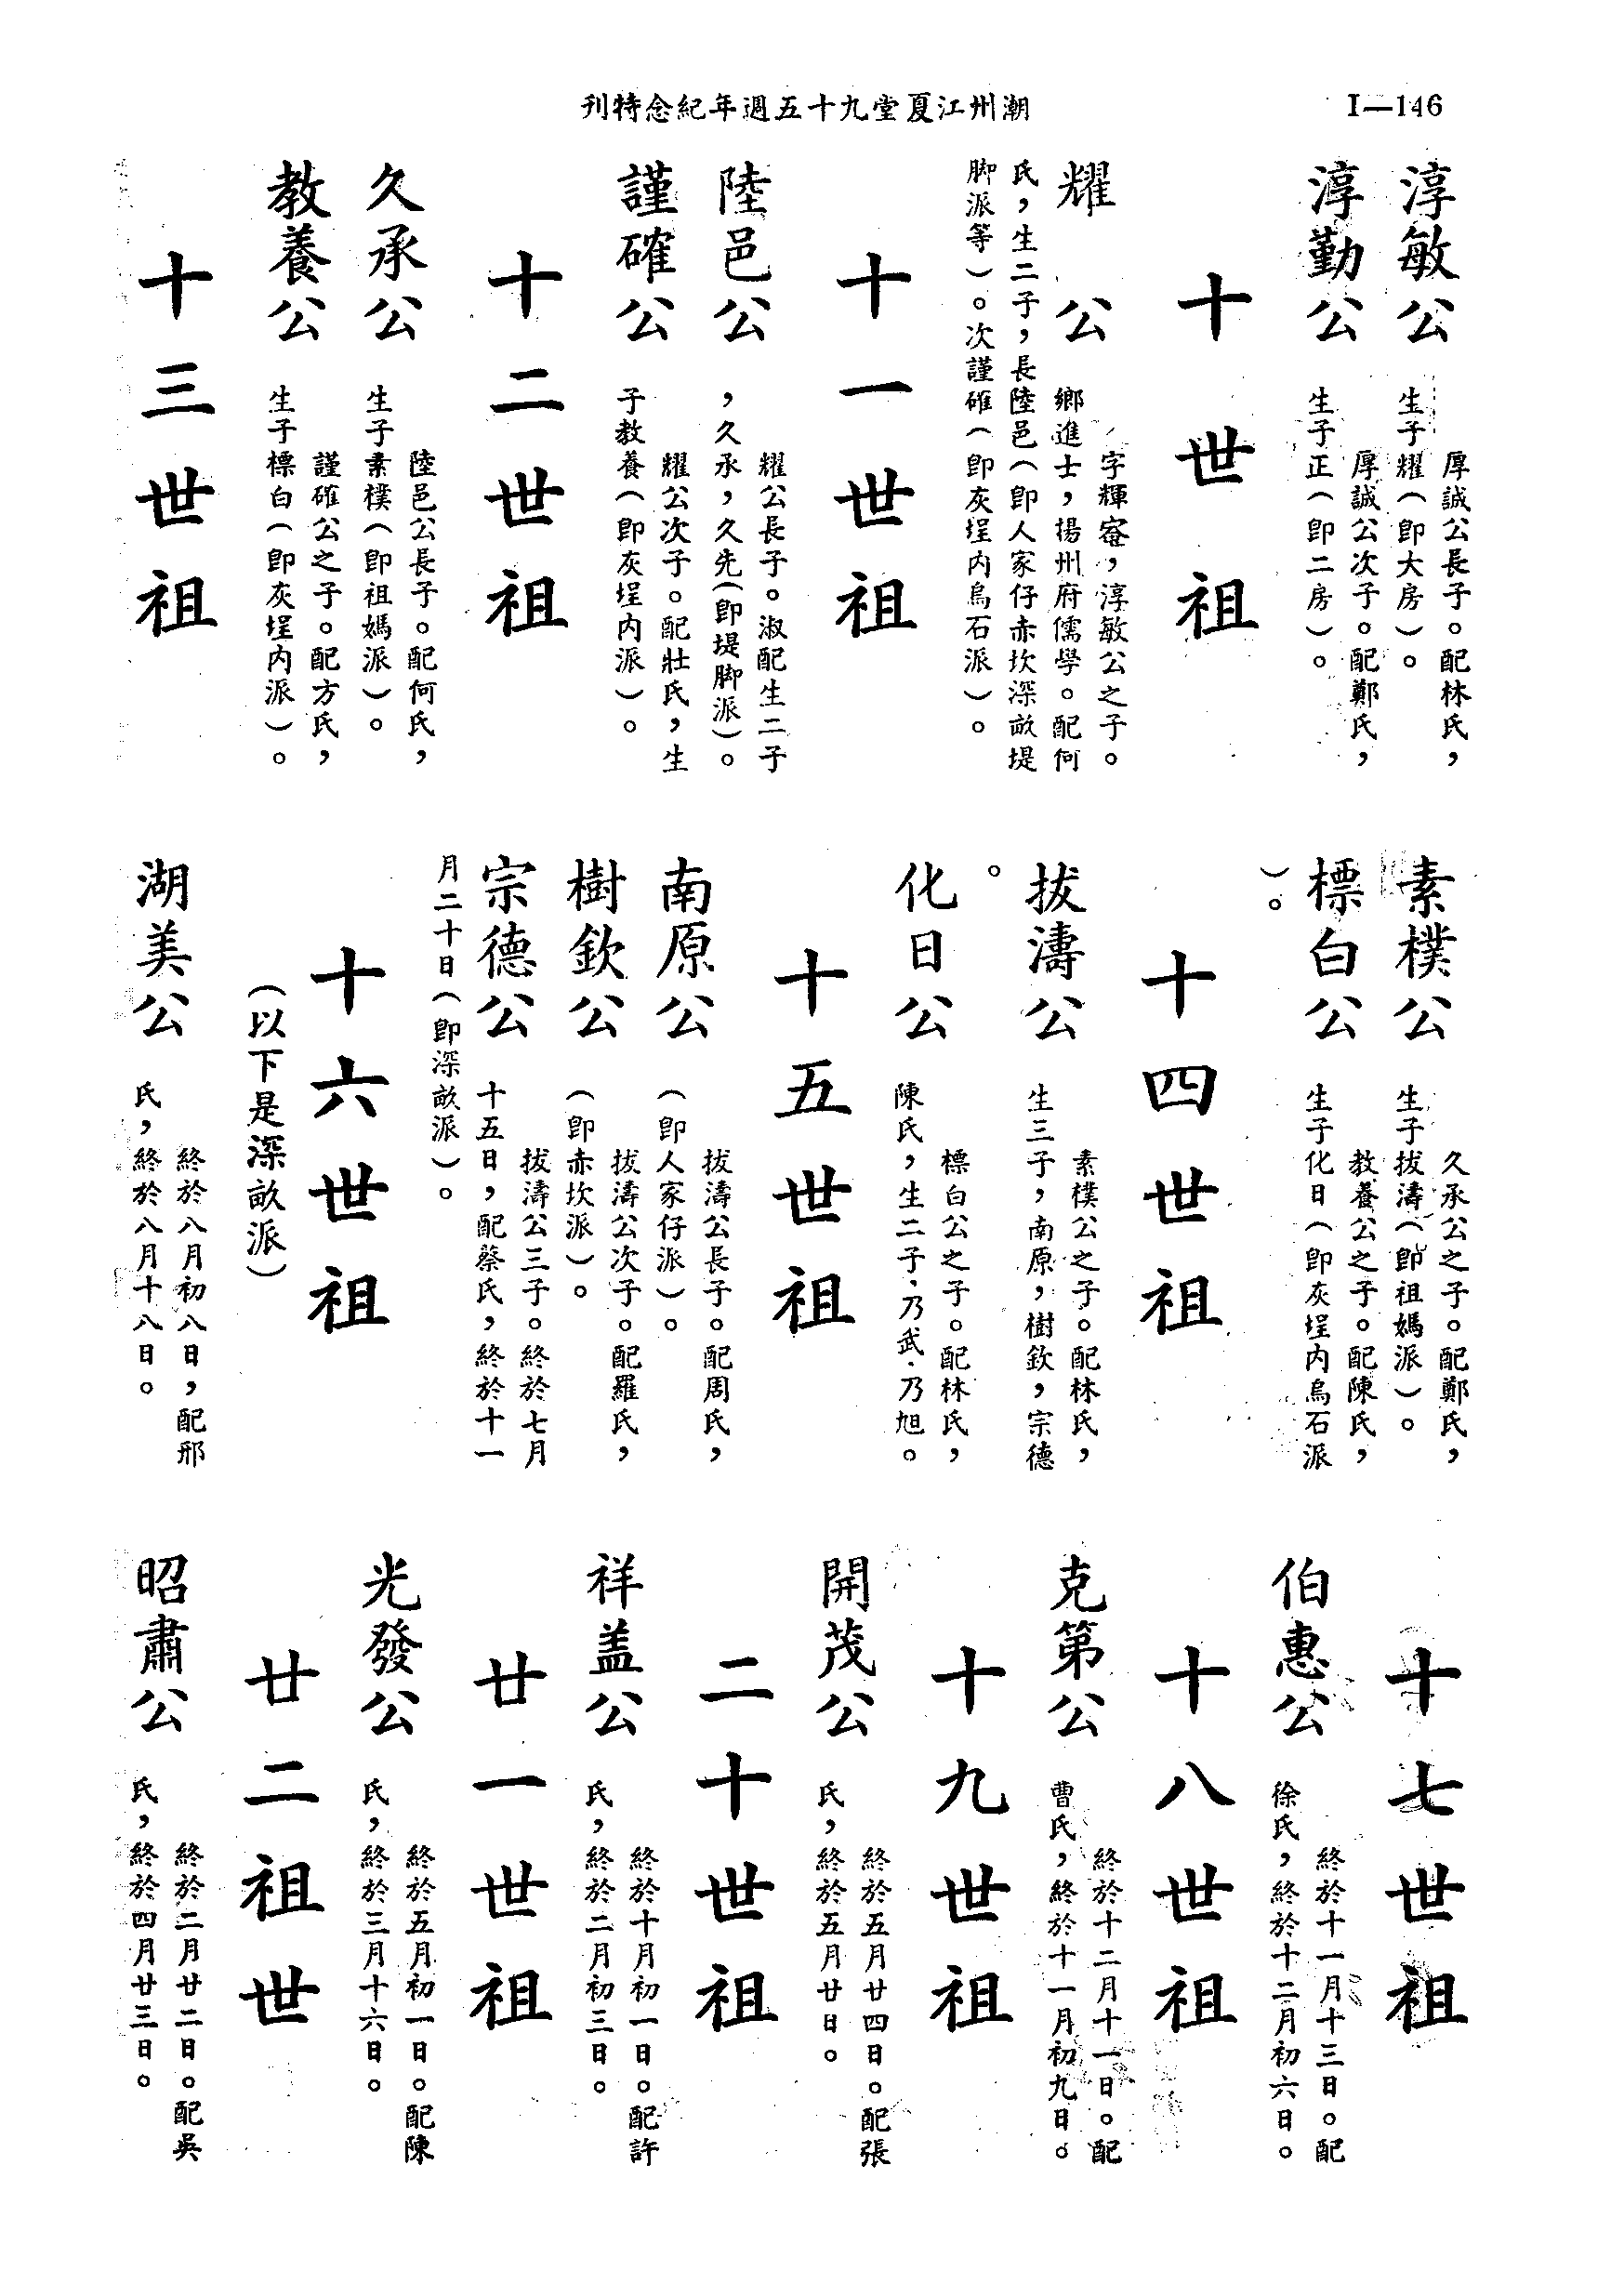 潮州江夏堂九十五週年紀念特刊
I—146
淳敏公
厚誠公長子。配林氏，
生子耀（即大房）。
淳勤公
厚誠公次子。配鄭氏，
生子正（即二房）。
十世祖
耀公
字輝菴，淳敏公之子。
鄉進士，揚州府儒學。配何
氏，生二子，長陸邑（即人家仔赤坎深畝堤
脚派等）。次謹確（即灰埕内烏石派）。
十一世祖
陸邑公
耀公長子。淑配生二子
，久承，久先（即堤脚派）。
謹確公
耀公次子。配壯氏，生
子教養（即灰埕内派）。
十二世祖
久承公
陸邑公長子。配何氏，
生子素樸（即祖媽派）。
教養公
謹確公之子。配方氏，
生子標白（即灰埕内派）。
十三世祖
素樸公
久承公之子。配鄭氏，
生子拔濤（即祖媽派）。
標白公
教養公之子。配陳氏，
生子化日（即灰埕内烏石派
）。
十四世祖
拔濤公
素樸公之子。配林氏，
生三子，南原，樹欽，宗德
。
化日公
標白公之子。配林氏，
陳氏，生二子．乃武．乃旭。
十五世祖
南原公
拔濤公長子。配周氏，
（即人家仔派）。
樹欽公
拔濤公次子。配羅氏，
（即赤坎派）。
宗德公
拔濤公三子。終於七月
十五日，配蔡氏，終於十一
月二十日（即深畝派）。
十六世祖
（以下是深畝派）
湖美公
終於八月初八日，配邢
氏，終於八月十八日。
十七世祖
伯惠公
終於十一月十三日。配
徐氏，終於十二月初六日。
十八世祖
克第公
終於十二月十一日。配
曹氏，終於十一月初九日。
十九世祖
開茂公
終於五月廿四日。配張
氏，終於五月廿日。
二十世祖
祥盖公
終於十月初一日。配許
氏，終於二月初三日。
廿一世祖
光發公
終於五月初一日。配陳
氏，終於三月十六日。
廿二祖世
昭肅公
終於二月廿二日。配吳
氏，終於四月廿三日。